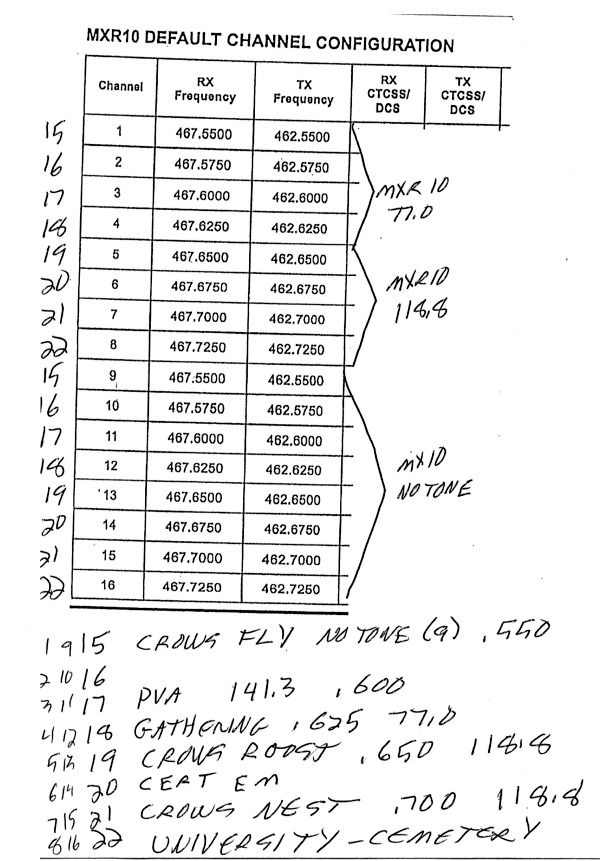 MXR10 DEFAULT CHANNEL CONFIGURATION
Channel RX Frequency TX Frequency RX CTCSS/ DCS TX CTCSS/ DCS
15 1 467.5500 462.5500
16 2 467.5750 462.5750
17 3 467.6000 462.6000 MXR 10
77.0
18 4 467.6250 462.6250
19 5 467.6500 462.6500
20 6 467.6750 462.6750 MXR10
21 7 467.7000 462.7000 118.8
22 8 467.7250 462.7250
15 9 467.5500 462.5500
16 10 467.5750 462.5750
17 11 467.6000 462.6000
18 12 467.6250 462.6250 MX10
19 13 467.6500 462.6500 NO TONE
20 14 467.6750 462.6750
21 15 467.7000 462.7000
22 16 467.7250 462.7250
1 9 15 CROWS FLY NO TONE (9) .550
2 10 16
3 11 17 PVA 141.3 .600
4 12 18 GATHERING .625 77.0
5 13 19 CROWS ROOST .650 118.8
6 14 20 CERT EM
7 15 21 CROWS NEST .700 118.8
8 16 22 UNIVERSITY - CEMETERY